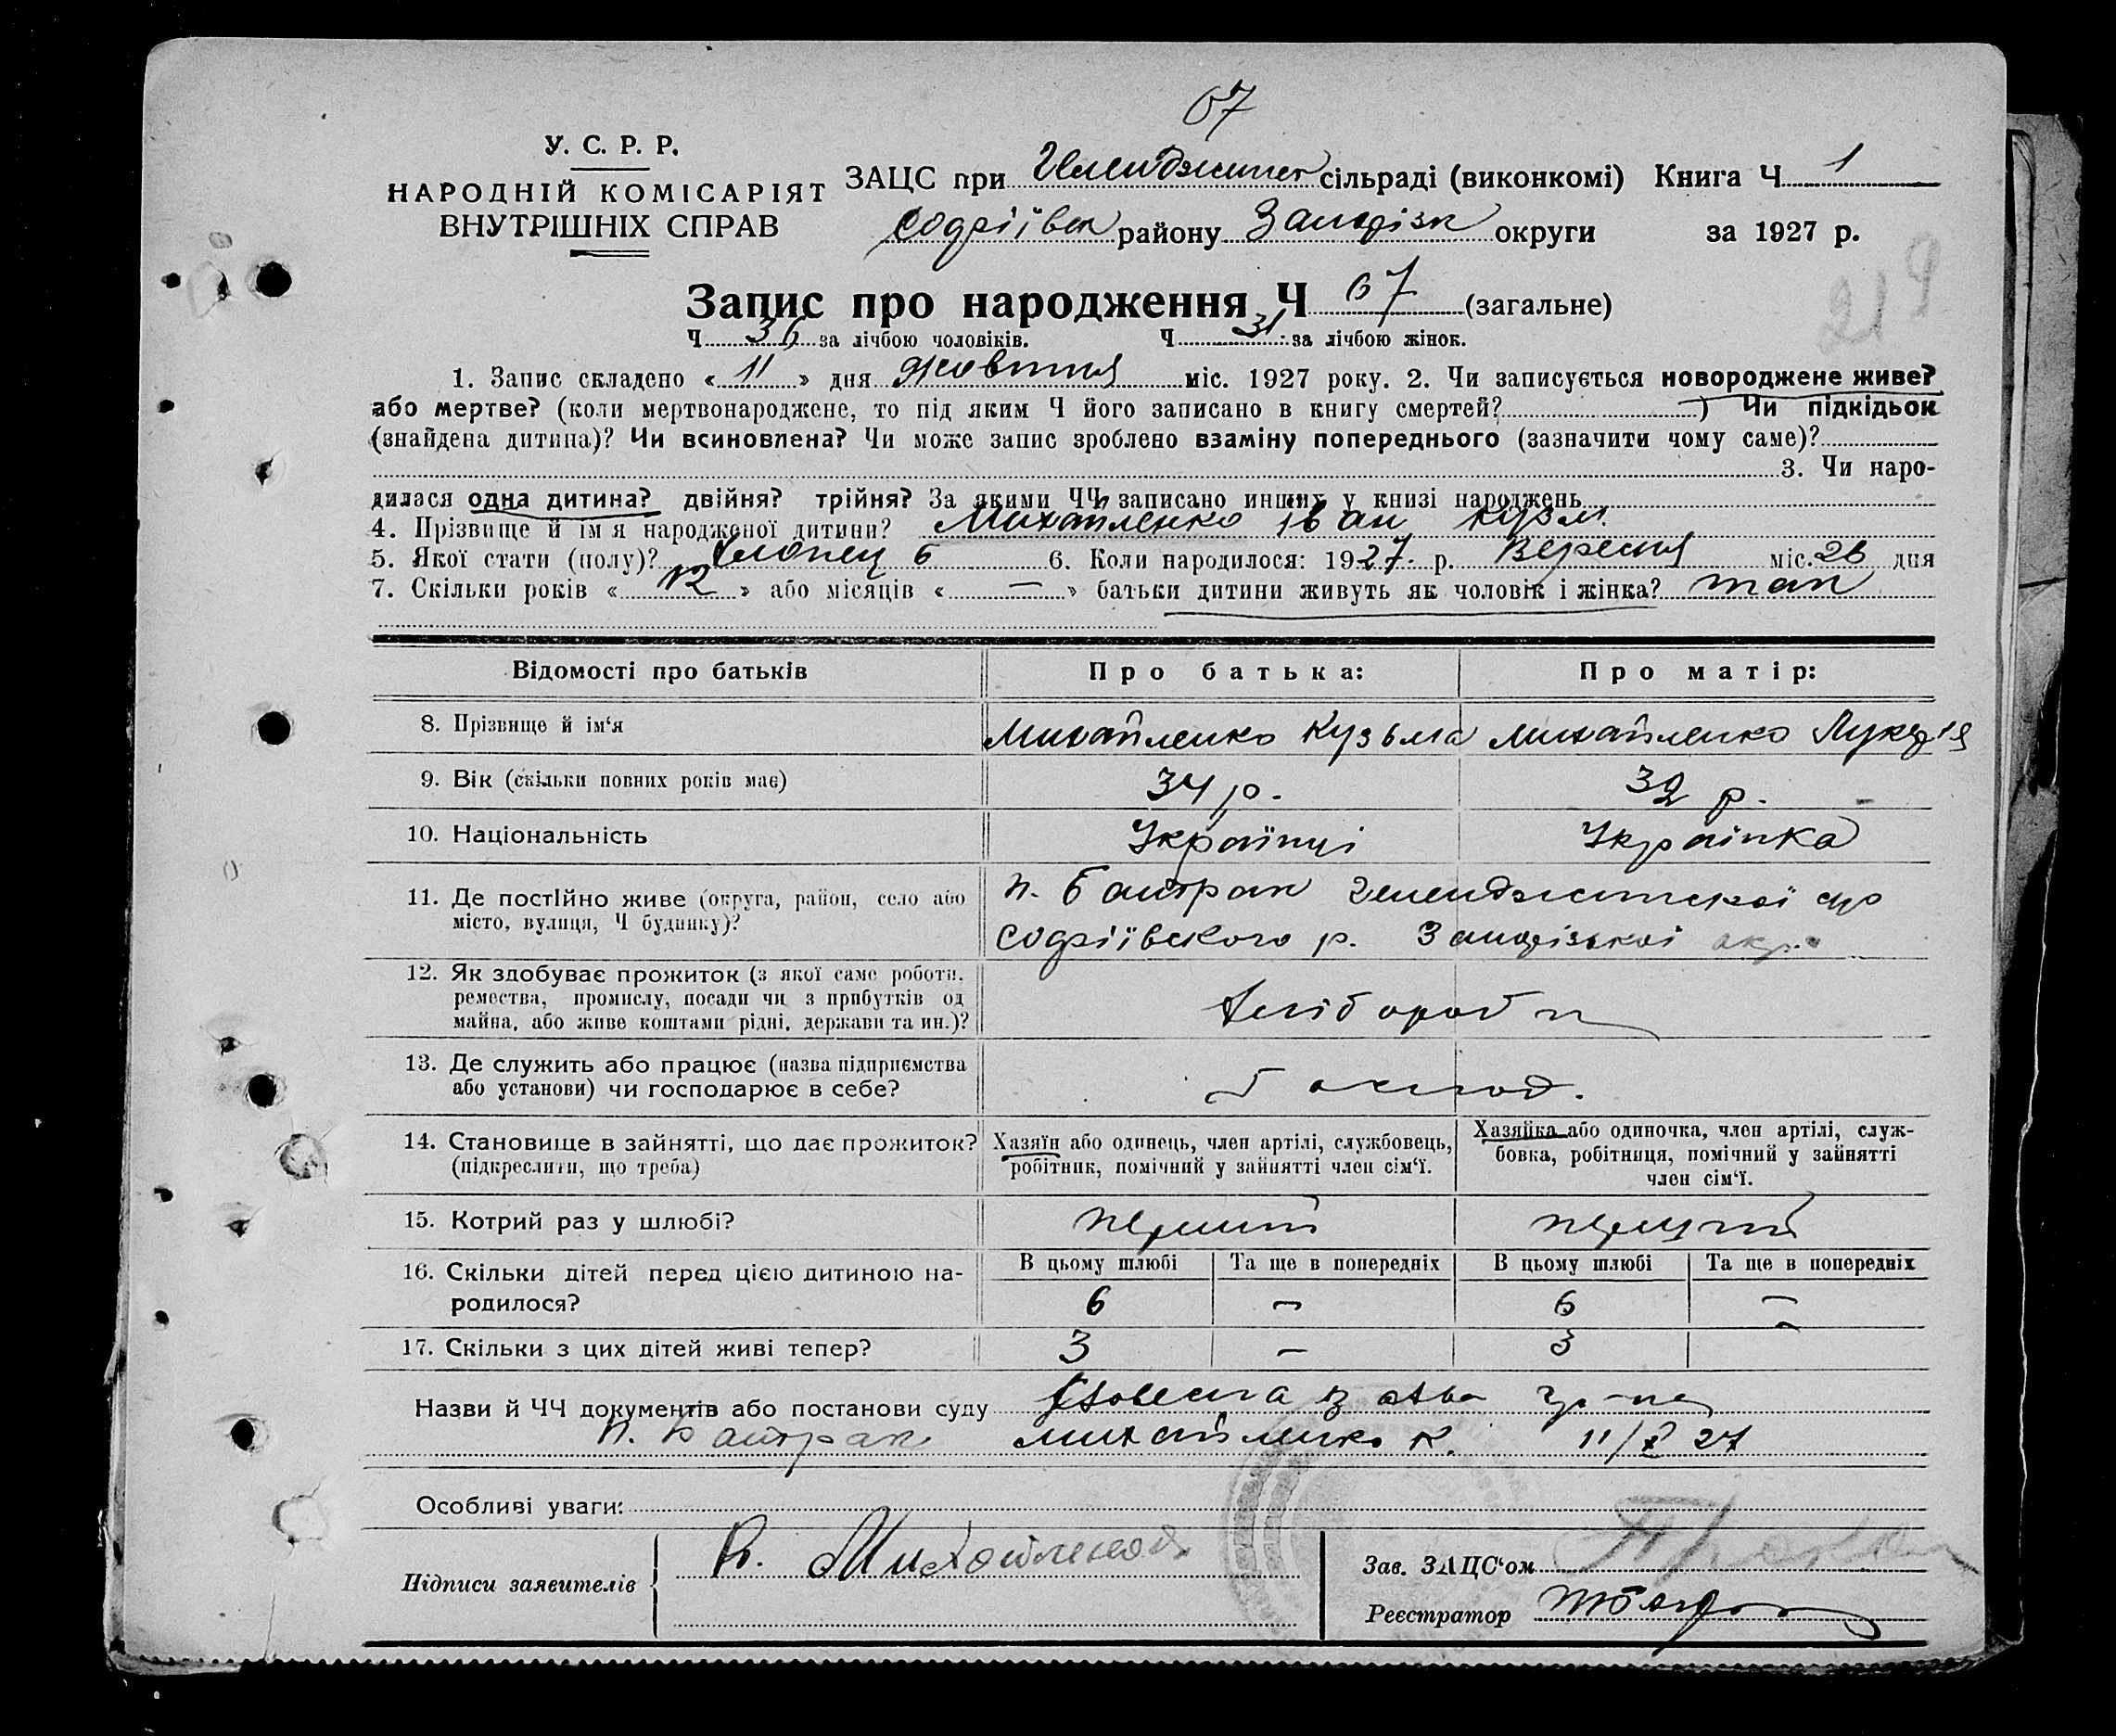 67
У. С. Р. Р.
НАРОДНІЙ КОМІСАРІЯТ
ВНУТРІШНІХ СПРАВ
ЗАЦС при сільраді (виконкомі) Книга Ч 1
району округи за 1927 р.
219
Запис про народження Ч 67 (загальне)
Ч 36 за лічбою чоловіків. Ч 31 за лічбою жінок.
1. Запис складено « 11 » дня жовтня міс. 1927 року. 2. Чи записується новороджене живе?
або мертве? (коли мертвонароджене, то під яким Ч його записано в книгу смертей? ) Чи підкідьок
(знайдена дитина)? Чи всиновлена? Чи може запис зроблено взаміну попереднього (зазначити чому саме)?
3. Чи наро-
дилася одна дитина? двійня? трійня? За якими ЧЧ записано инших у книзі народжень
4. Прізвище й ім я народженої дитини? Михайленко Іван Кузм.
5. Якої стати (полу)? хлопец 6. Коли народилося: 1927 р. Вересня міс. 26 дня
7. Скільки років « 12 » або місяців « — » батьки дитини живуть як чоловік і жінка? так
Відомості про батьків Про батька: Про матір:
8. Прізвище й ім‘я Михайленко Кузьма Михайленко Лукер'я
9. Вік (скільки повних років має) 34 р. 32 р.
10. Національність Українці Українка
11. Де постійно живе (округа, район, село або
місто, вулиця, Ч будинку)?
п. Байрак
р.
12. Як здобуває прожиток (з якої саме роботи,
ремества, промислу, посади чи з прибутків од
майна, або живе коштами рідні, держави та ин.)?
Хлібороб
13. Де служить або працює (назва підприємства
або установи) чи господарює в себе?
Господ.
14. Становище в зайнятті, що дає прожиток?
(підкреслити, що треба)
Хазяїн або одинець, член артілі, службовець,
робітник, помічний у зайнятті член сім‘ї.
Хазяйка або одиночка, член артілі, служ-
бовка, робітниця, помічний у зайнятті
член сім‘ї.
15. Котрий раз у шлюбі? перший перший
16. Скільки дітей перед цією дитиною на-
родилося?
В цьому шлюбі Та ще в попередніх В цьому шлюбі Та ще в попередніх
6 — 6 —
17. Скільки з цих дітей живі тепер? 3 — 3 —
Назви й ЧЧ документів або постанови суду
п. Байрак Михайленко К. 11/X 27
Особливі уваги:
Підписи заявителів К. Михайленко
Зав. ЗАЦС‘ом
Реєстратор